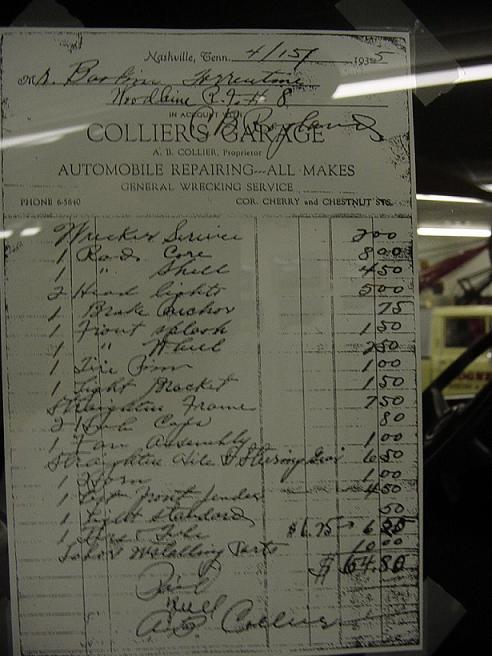 Nashville, Tenn. 4/15/ 1935
Mrs.
Woodbine R. F. D. 8
IN ACCOUNT WITH
COLLIER'S GARAGE
A. B. COLLIER, Proprietor
AUTOMOBILE REPAIRING---ALL MAKES
GENERAL WRECKING SERVICE
PHONE 6-5840 COR. CHERRY and CHESTNUT STS.
Wrecker Service 200
1 Rad. Core 800
1 " Shell 450
2 Head lights 500
1 Brake Anchor 75
1 Front splash 150
1 " Wheel 250
1 Tire 100
1 Light Bracket 150
Straighten Frame 750
2 Hub Caps 80
1 Fan Assembly 100
Straighten Axle & Steering Gear 650
1 Horn 100
1 Left front fender 450
1 Light standard 50
1 Tire & Tube $6.75 6
Labor Installing Parts 10 00
$ 64.80
Paid
A.B. Collier